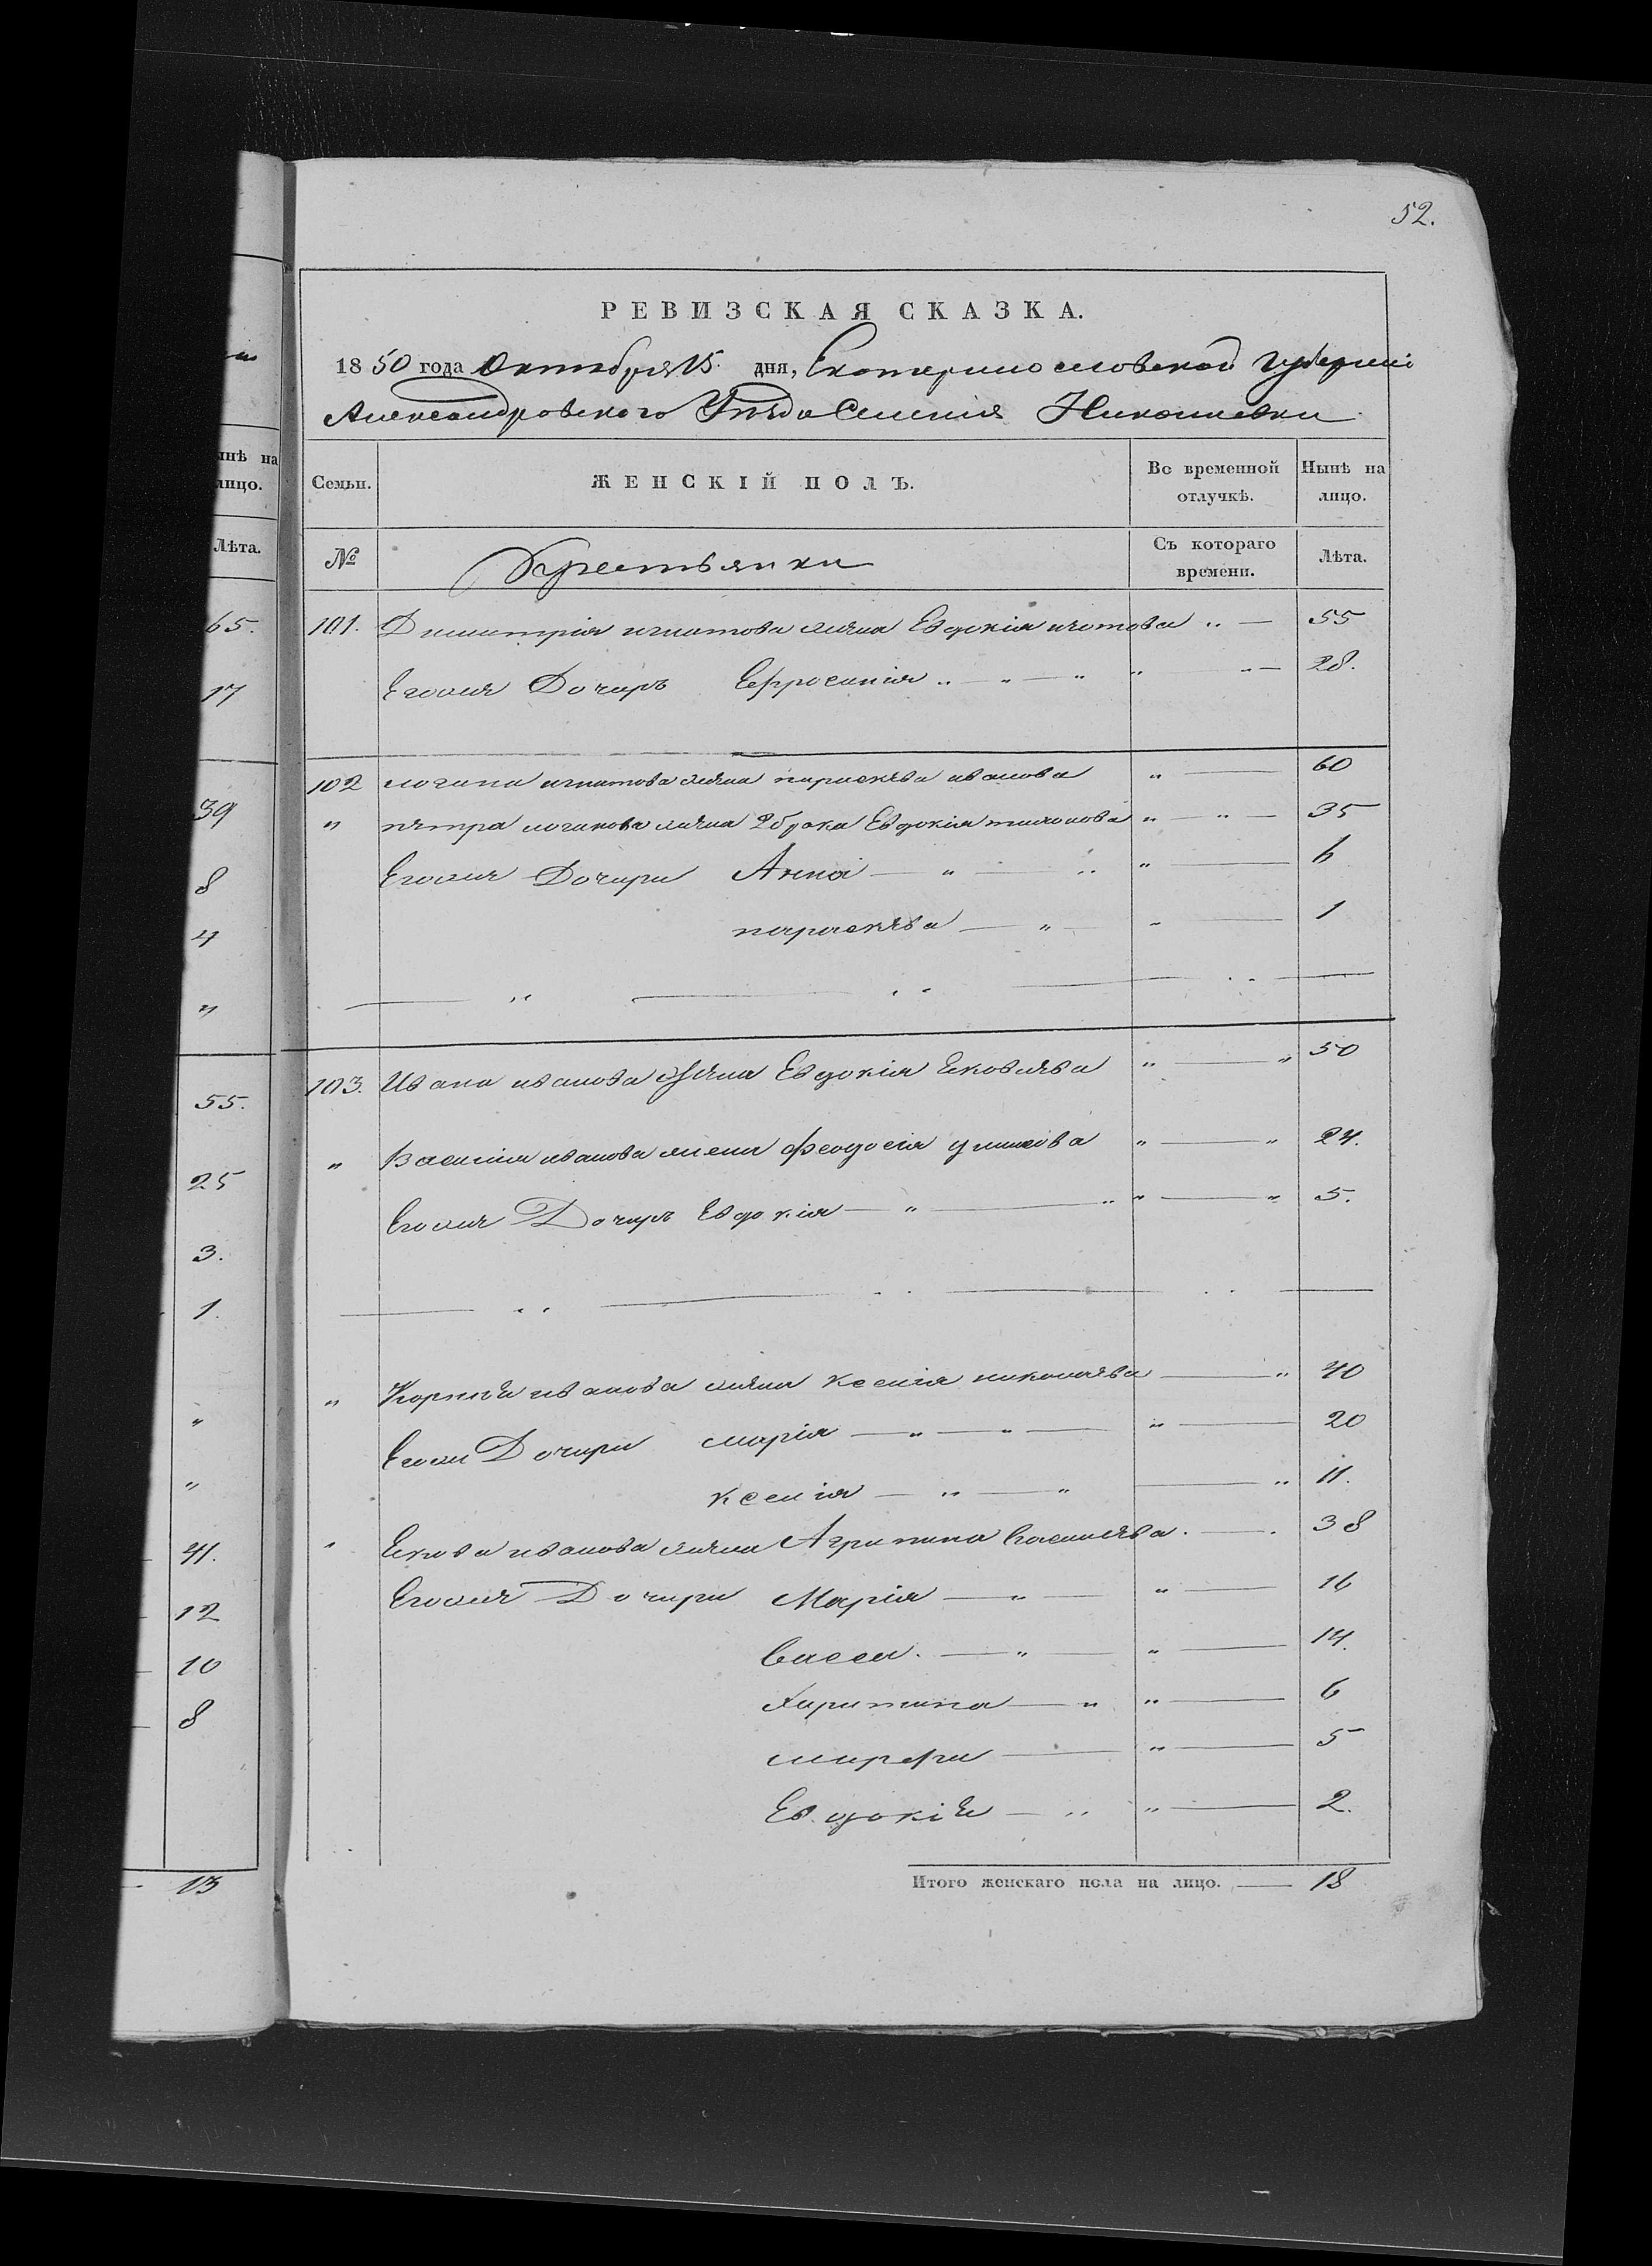 52.
РЕВИЗСКАЯ СКАЗКА.
1850 года Октября 15. дня, Екатеринославской Губернiи
Александровскаго Уѣзда Селенiя Николаевки
Семьи. ЖЕНСКIЙ ПОЛЪ. Во временной отлучкѣ. Нынѣ на лицо.
№ Крестьянки Съ котораго времени. Лѣта.
101. Димитрiя игнатова жѣна Евдокiя изотова „ — 55
Егожѣ Дочерь Ефросинiя „ — „ — „ „ „ — 28.
102 логина игнатова жѣна параскѣва иванова „ — 60
„ пѣтра логинова жѣна 2 брака Евдокiя „ — „ — 35
Егожѣ Дочери Анна — „ — „ „ — 6
параскѣва — „ — „ — 1
— „ — „ — „ —
103. Ивана иванова Жѣна Евдокiя Яковлѣва „ — „ 50
„ Василiя иванова жѣна феодосiя „ — „ 24.
Егожѣ Дочерь Евдокiя — „ — „ „ — „ 5.
— „ — „ — „ —
„ Корнѣя иванова жѣна ксенiя николаѣва — „ 40
Егожѣ Дочери марiя — „ — „ — „ — 20
ксенiя — „ — „ — „ 11.
„ Якова иванова жѣна Агрипина Василѣва. — . 38
Егожѣ Дочери Марiя — „ — „ — 16
Васса. — „ — „ — 14.
Харитина — „ „ — 6
марфа — „ — 5
Евдокiя — „ „ — 2.
Итого женскаго пола на лицо. — 18
нынѣ на
лицо.
Лѣта.
65.
17
39
8
4
„
55.
25
3.
1.
„
„
41.
12
10
8
13